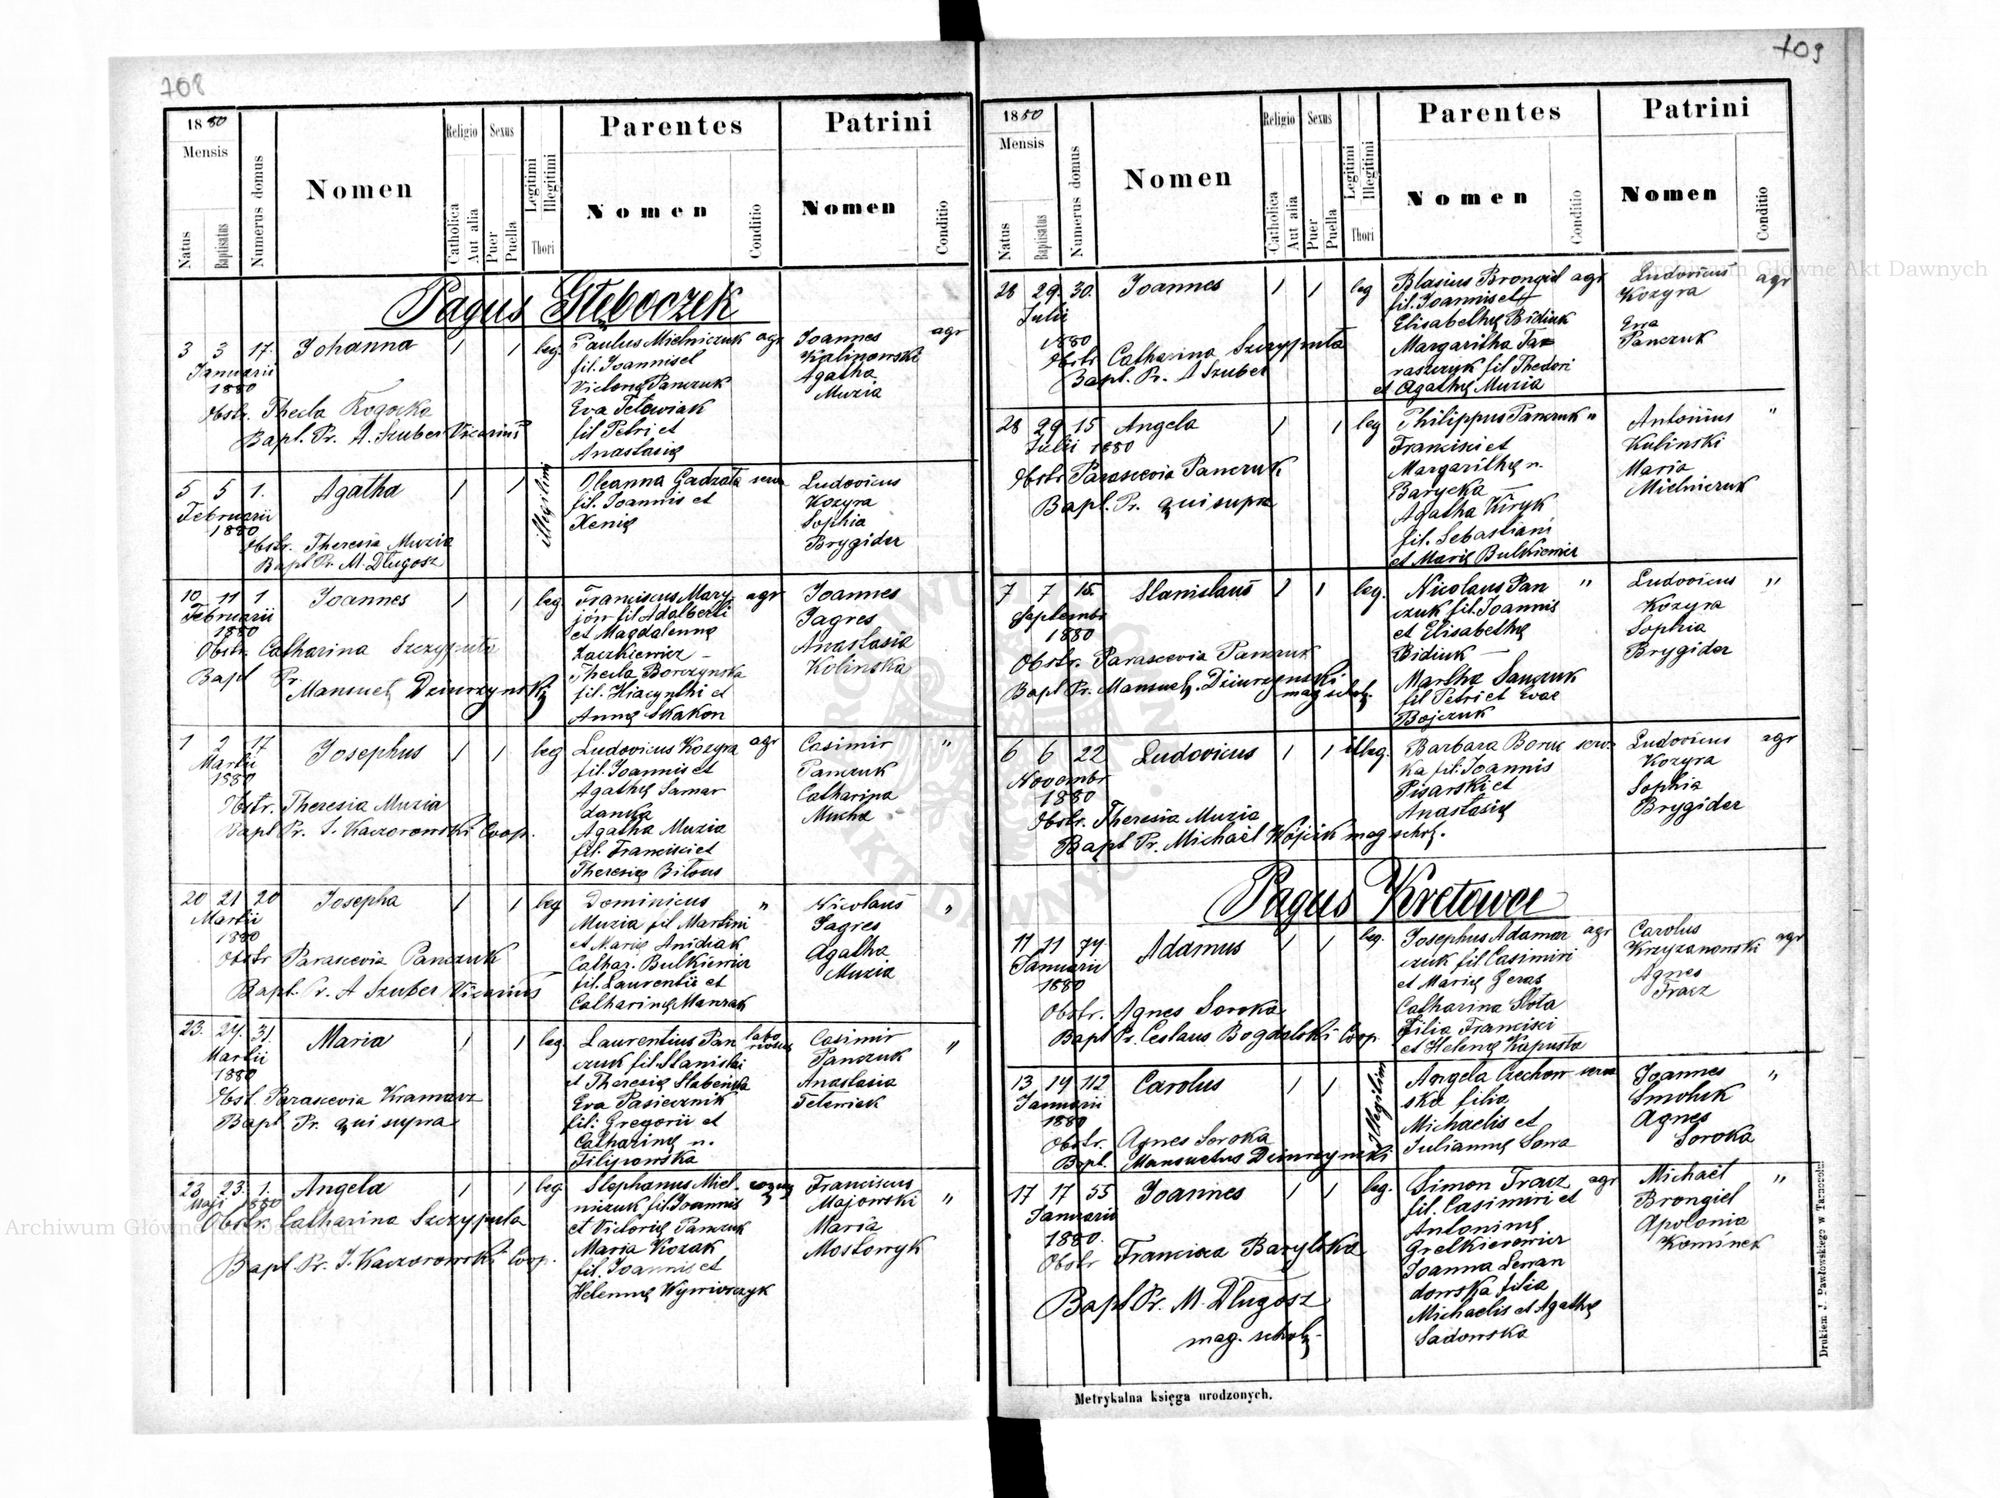 708
1880
Mensis
Natus
Baptisatus
Numerus domus
Nomen
Religio
Catholica
Aut alia
Sexus
Puer
Puella
Legitimi
Illegitimi
Thori
Parentes
Nomen
Conditio
Patrini
Nomen
Conditio
Pagus Głęboczek
3 3 17. Johanna 1 1 leg. Paulus Mielniczuk agr Joannes agr
Januarii fil. Joannis et Kalinowski
1880 Victorię Panczuk Agatha
Obstr. Thecla Rogocka Eva Tetowiak Muzia
Bapt. Pr. A. Szuber Vicarius fil Petri et
Anastasię
5 5 1. Agatha 1 1 illegitimi Oleanna Gadzała serva Ludovicus
Februarii fil. Joannis et Kozyra
1880 Xenię Sophia
Obstr. Theresia Muzia Brygider
Bapt Pr. M. Długosz
10 11 1 Joannes 1 1 leg. Franciscus Mary agr Joannes
Februarii jón fil Adalberti Jagres
1880 et Magdalennę Anastasia
Obstr. Catharina Szczyputa Kaczkiewicz Kolinska
Bapt Pr. Thecla Borczynska
Mansuet Dziurzynski fil. Hiacynthi et
Annę Skakon
1 2 17 Josephus 1 1 leg Ludovicus Kozyra agr Casimir "
Martii fil. Joannis et Panczuk
1880 Agathę Samar Catharina
Obstr. Theresia Muzia danka Mucha
Bapt Pr. J. Kaczorowski Coop. Agatha Muzia
fil. Francisci et
Theresię Bitous
20 21 20 Josepha 1 1 leg Dominicus " Nicolaus "
Martii Muzia fil Martini Jagres
1880 et Marię Anidrak Agatha
Obstr Parascevia Panczuk Cathar. Bulkiewicz Muzia
Bapt. Pr. A Szuber Vicarius fil. Laurentii et
Catharinę Manzak
23. 24. 31. Maria 1 1 leg. Laurentius Pan labo Casimir "
Martii czuk fil. Stanislai riosus Panczuk
1880 et Theresię Anastasia
Obst. Parascevia Kramarz Eva Pasiecznik
Bapt Pr. qui supra fil: Gregorii et
Catharinę n.
Filipowska
23 23. 1. Angela 1 1 leg Stephanus Miel- Franciscus "
Maji 1880 niczuk fil. Joannis Majowski
Obstr. Catharina Szczyputa et Victorię Panczuk Maria
Bapt. Pr. J. Kaczorowski Coop. Maria Kozak Mostowyk
fil. Joannis et
Helennę Wywiorczyk
709
1880
Mensis
Natus
Baptisatus
Numerus domus
Nomen
Religio
Catholica
Aut alia
Sexus
Puer
Puella
Legitimi
Illegitimi
Thori
Parentes
Nomen
Conditio
Patrini
Nomen
Conditio
28 29. 30. Joannes 1 1 leg Blasius Brongiel agr Ludovicus agr
Julii fil. Joannis et Kozyra
1880 Elisabethę Bidiuk Eva
Obstr Catharina Szczyputa Margaritha Tar Panczuk
Bapt. Pr. A Szuber raszczyk fil Thedori
et Agathę Muzia
28 29 15 Angela 1 1 leg Philippus Panczuk " Antonius "
Julii 1880 Francisci et Kulinski
Obstr Parascevia Panczuk Margarithę n. Maria
Bapt. Pr. qui supra Barycka Mielniczuk
Agatha Kiryk
fil. Sebastiani
et Marię Bulkiewicz
7 7 15. Stanislaus 1 1 leg. Nicolaus Pan " Ludovicus "
Septembr czuk fil. Joannis Kozyra
1880 et Elisabethę Sophia
Obstr. Parascevia Panczuk Bidiuk Brygider
Bapt Pr. Mansuet. Dziurzynski mag schol. Martha Sanczuk
fil Petri et Evae
Bojczuk
6 6 22 Ludovicus 1 1 illeg. Barbara Boruc serv. Ludovicus agr
Novembr ka fil: Joannis Kozyra
1880 Pisarski et Sophia
Obstr. Theresia Muzia Anastasię Brygider
Bapt Pr. Michaël Wójcik mag schol.
Pagus Kretowce
11 11 74. Adamus 1 1 leg. Josephus Adamar agr Carolus agr
Januarii czuk fil Casimiri Krzyzanowski
1880 et Marię Geras Agnes
Obstr. Agnes Soroka Catharina Slota Fracz
Bapt Pr. Ceslaus Bogdalski Coop. Filia Francisci
et Helenę Kapusta
13 14 112 Carolus 1 1 Illegitimi Angela Czechow serva Joannes "
Januarii ska filia Smoluk
1880 Michaelis et Agnes
Obstr. Agnes Soroka Juliannę Sowa Soroka
Bapt. Mansuetus Dziurzynski
17 17 55 Joannes 1 1 leg. Simon Fracz agr Michaël "
Januarii fil. Casimiri et Brongiel
1880. Antoninę Apolonia
Obstr Francisca Barylska Gretkierewicz Kominek
Bapt Pr. M. Długosz Joanna Lewan
mag. schol. dowska filia
Michaelis et Agathę
Sadowska
Metrykalna księga urodzonych.
Drukiem J. Pawłowskiego w Tarnopolu
Archiwum Główne Akt Dawnych
Archiwum Główne Akt Dawnych